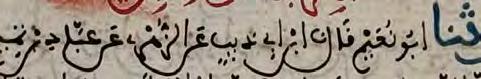 ثنا ابو نعيم قال ثنا ابن ابي ذيب عن الزهري عن عباد بن تميم